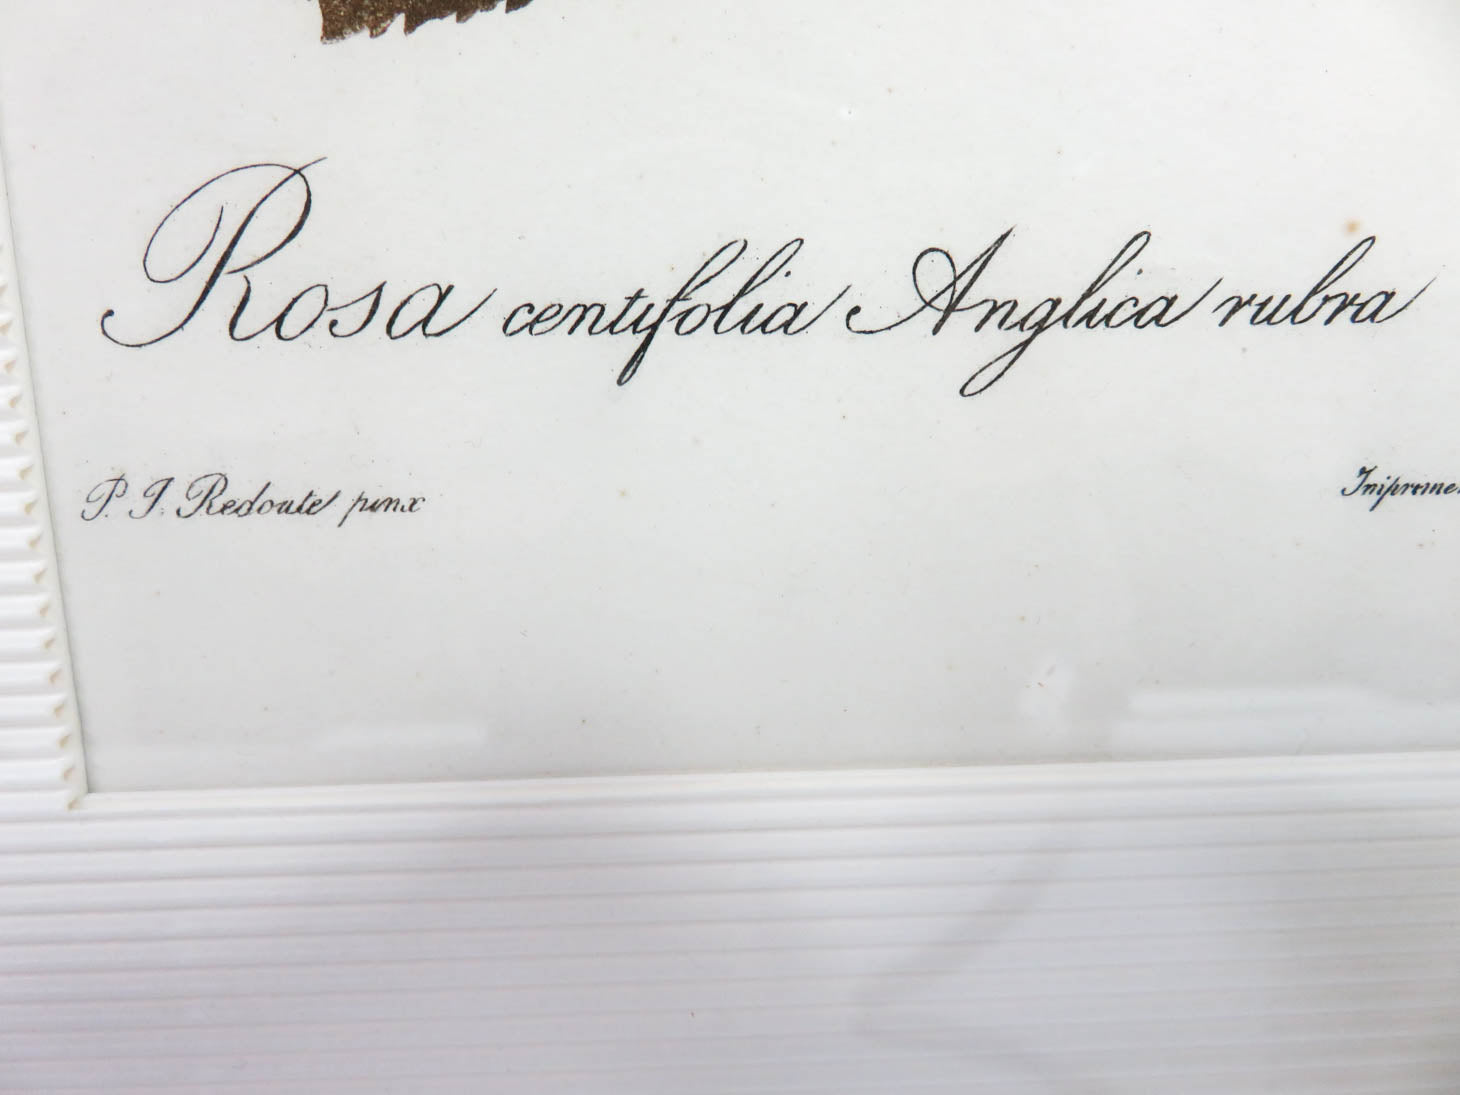 Rosa centifolia Anglica rubra
P. J. Redoute pinx